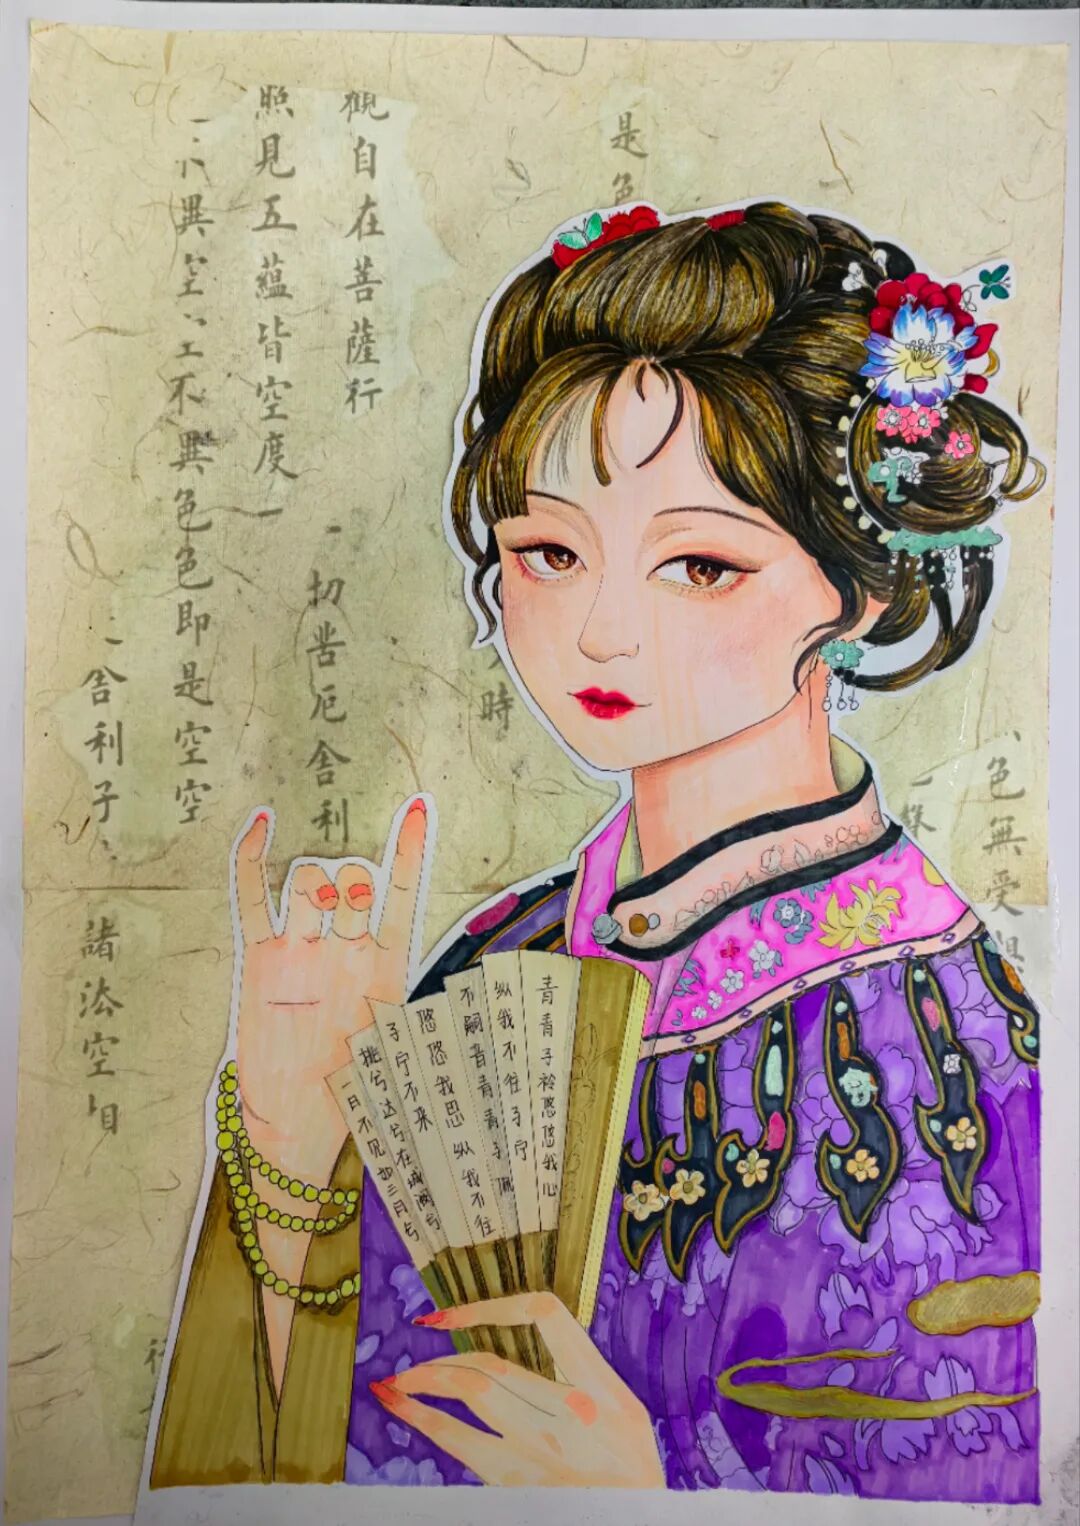 色無受
是色
時
觀自在菩薩行
照見五蘊皆空度
一切苦厄舍利
異空不異色色即是空空
舍利子
諸法空
青青子衿悠悠我心
纵我不往子宁
不嗣音青青子佩
悠悠我思纵我不往
子宁不来
挑兮达兮在城阙兮
一日不见如三月兮